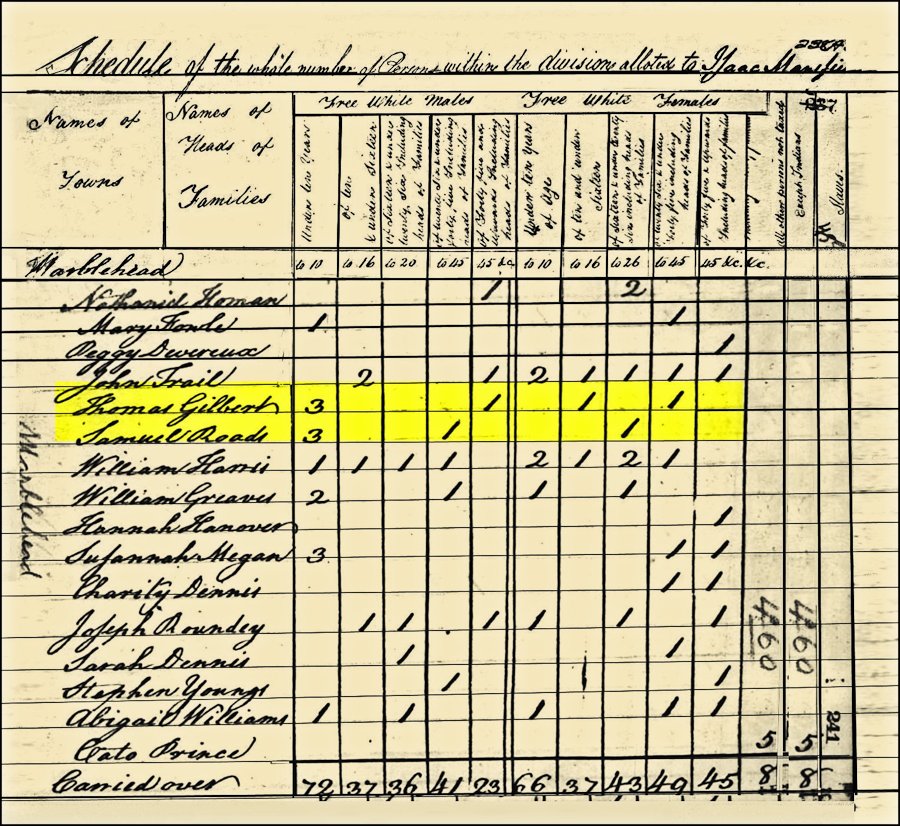 Schedule of the whole number of Persons within the division allotted to Isaac Mansfie
Names of Towns
Names of Heads of Families
Free White Males
Free White Females
Under ten Years
of ten & under Sixteen
of Sixteen & under twenty Six Including heads of Families
of twenty Six & under forty five Including heads of Families
of Forty five and upwards Including heads of Families
Under ten Years of Age
of ten and under Sixteen
of Sixteen & under twenty Six including heads of Families
of twenty Six & under Forty five including heads of Families
of Forty five & upwards Including heads of families
all other persons not taxed
Except Indians
Slaves.
Marblehead to 10 to 16 to 20 to 45 45 &c to 10 to 16 to 26 to 45 45 &c. &c.
Nathaniel Homan 1 2
Mary Fowle 1 1
Peggy Devereux 1
John Trail 2 1 2 1 1 1 1
Thomas Gilbert 3 1 1 1
Samuel Roads 3 1 1
William Harris 1 1 1 1 2 1 2 1
William Greaves 2 1 1 1
Hannah Hanover 1
Susannah Megan 3 1 1
Charity Dennis 1 1
Joseph Roundey 1 1 1 1 1 1
Sarah Dennis 1 1
Stephen Youngs 1 1
Abigail Williams 1 1 1 1 1
Cato Prince 5 5
Carried over 72 37 36 41 23 66 37 43 49 45 8 8
Marblehead
460
460
241